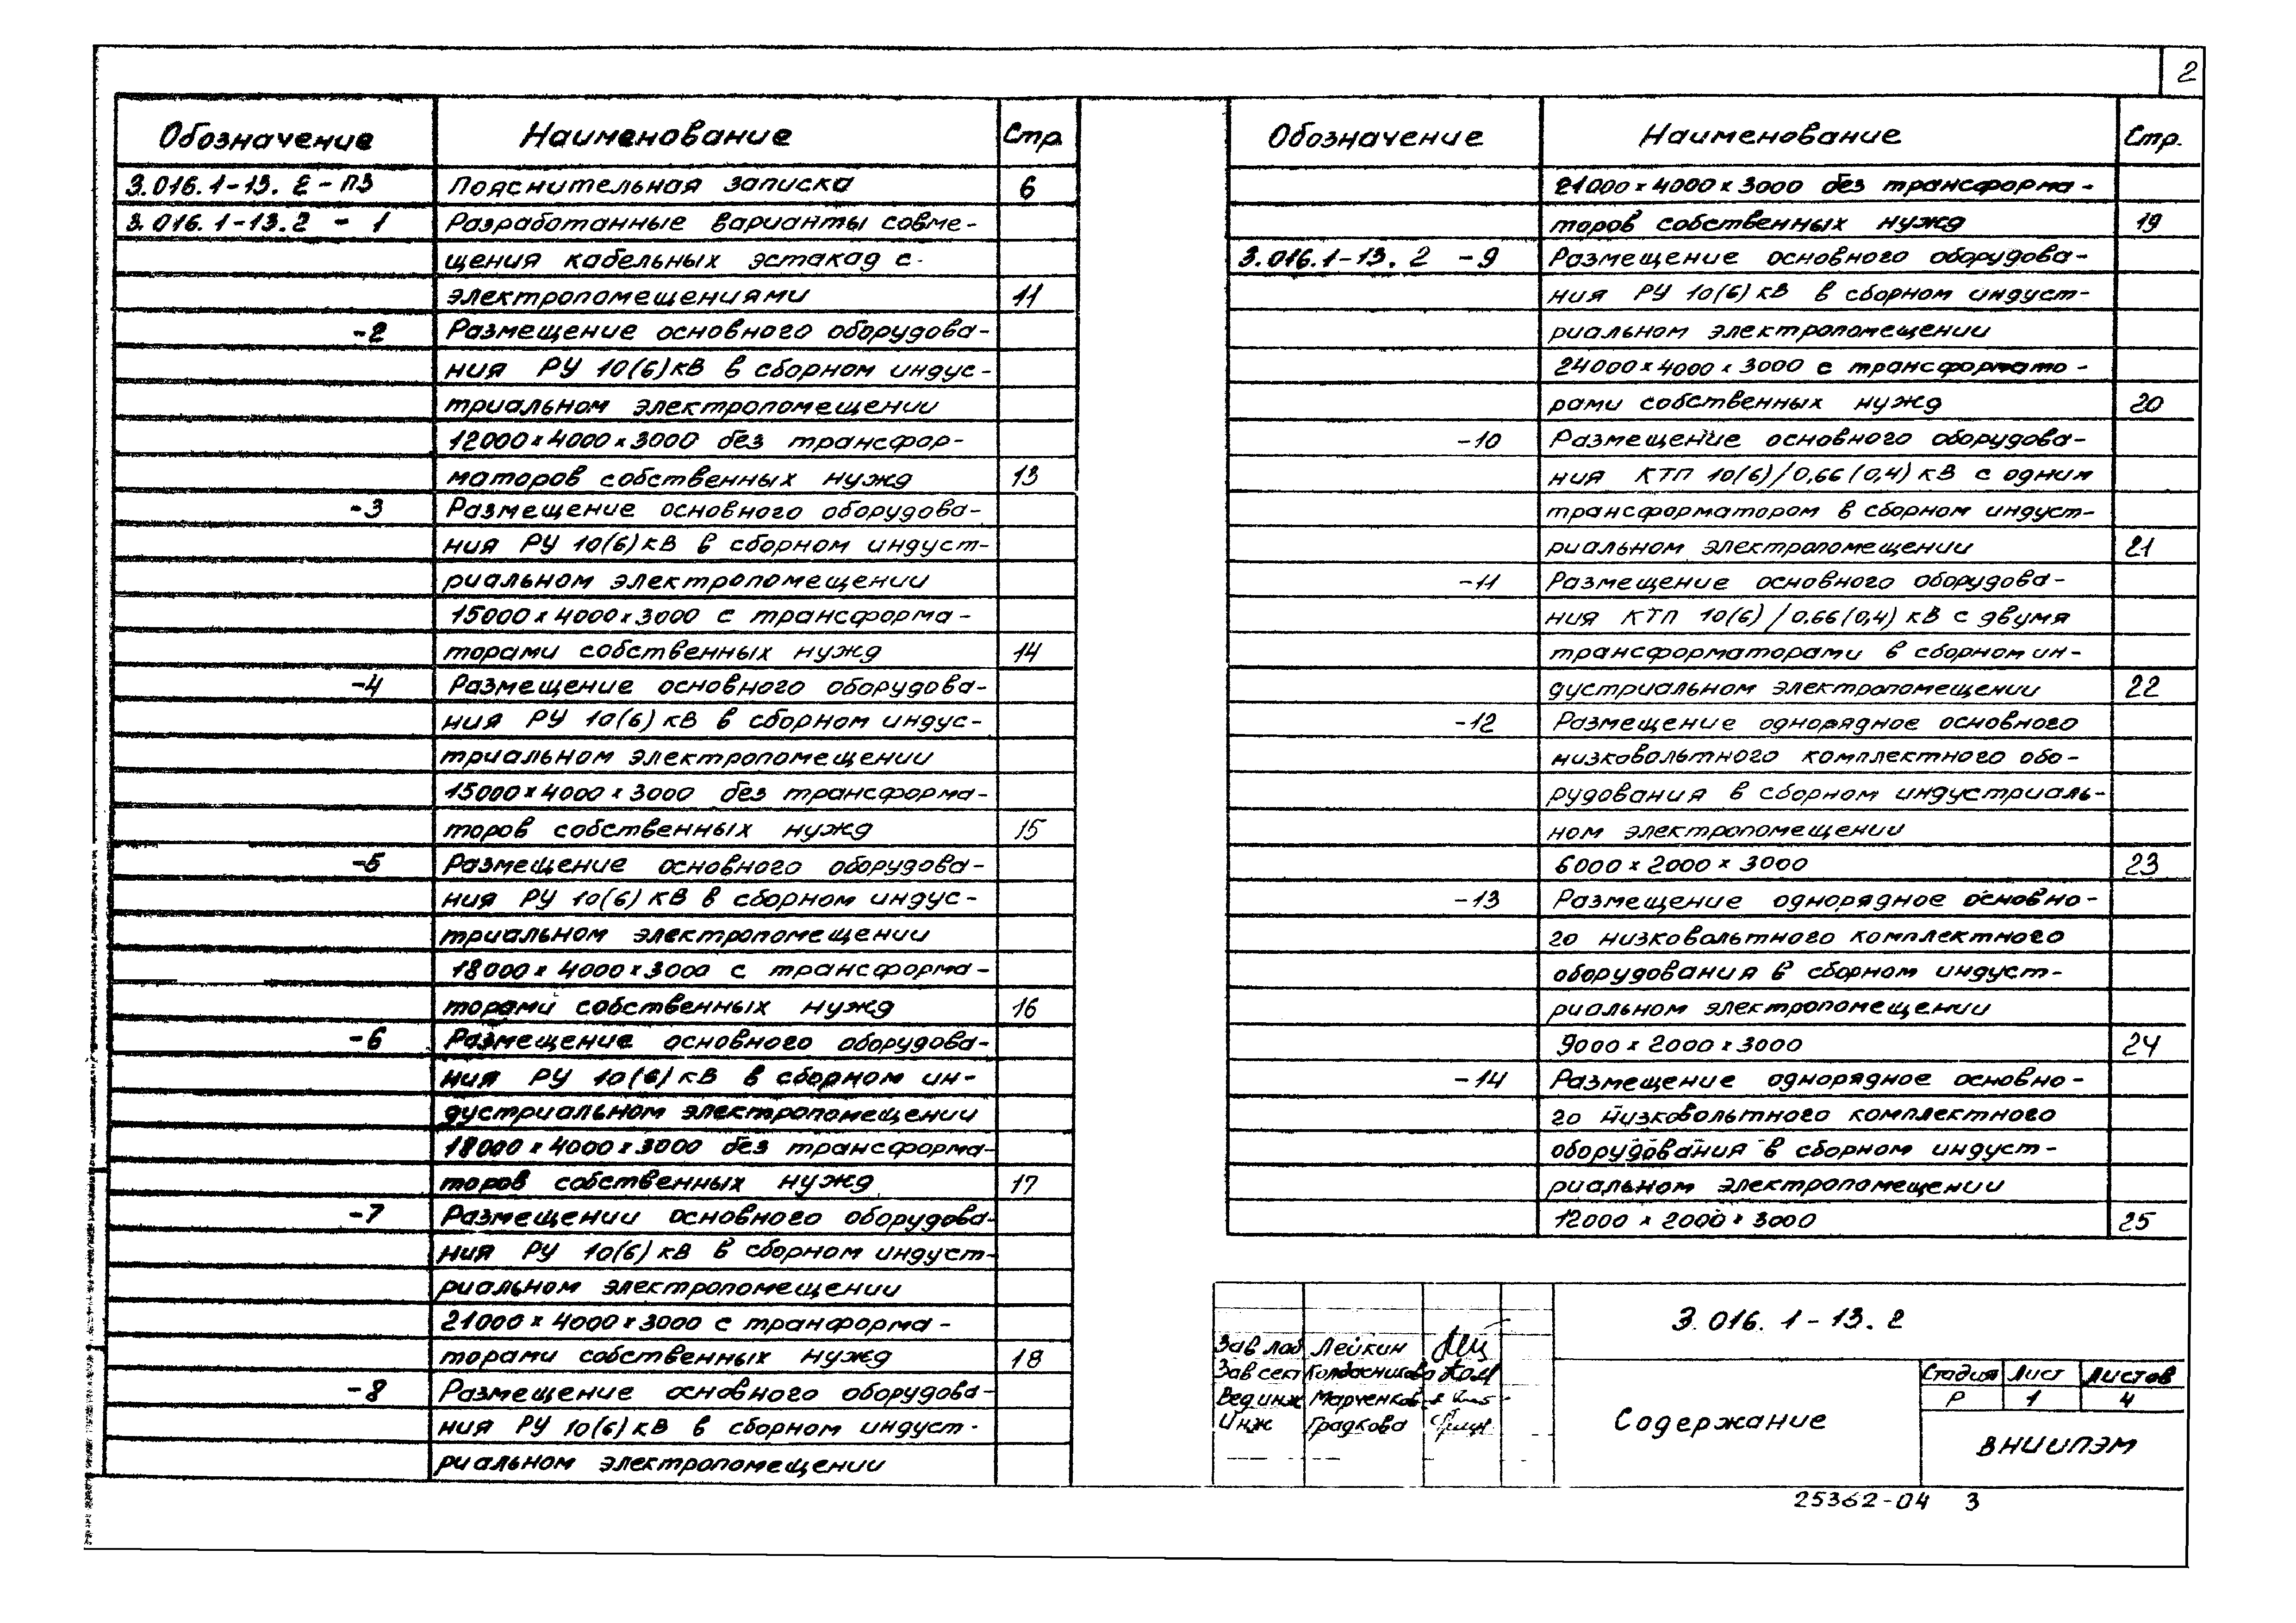 2
Обозначение Наименование Стр.
3.016.1-13.2-ПЗ Пояснительная записка 6
3.016.1-13.2-1 Разработанные варианты совме-
щения кабельных эстакад с
электропомещениями 11
-2 Размещение основного оборудова-
ния РУ 10(6)кВ в сборном индус-
триальном электропомещении
12000×4000×3000 без трансфор-
маторов собственных нужд 13
-3 Размещение основного оборудова-
ния РУ 10(6)кВ в сборном индуст-
риальном электропомещении
15000×4000×3000 с трансформа-
торами собственных нужд 14
-4 Размещение основного оборудова-
ния РУ 10(6)кВ в сборном индус-
триальном электропомещении
15000×4000×3000 без трансформа-
торов собственных нужд 15
-5 Размещение основного оборудова-
ния РУ 10(6)кВ в сборном индус-
триальном электропомещении
18000×4000×3000 с трансформа-
торами собственных нужд 16
-6 Размещение основного оборудова-
ния РУ 10(6)кВ в сборном ин-
дустриальном электропомещении
18000×4000×3000 без трансформа-
торов собственных нужд 17
-7 Размещении основного оборудова-
ния РУ 10(6)кВ в сборном индуст-
риальном электропомещении
21000×4000×3000 с транформа-
торами собственных нужд 18
-8 Размещение основного оборудова-
ния РУ 10(6)кВ в сборном индуст-
риальном электропомещении
Обозначение Наименование Стр.
21000×4000×3000 без трансформа-
торов собственных нужд 19
3.016.1-13.2 -9 Размещение основного оборудова-
ния РУ 10(6)кВ в сборном индуст-
риальном электропомещении
24000×4000×3000 с трансформато-
рами собственных нужд 20
-10 Размещение основного оборудова-
ния КТП 10(6)/0,66(0,4)кВ с одним
трансформатором в сборном индуст-
риальном электропомещении 21
-11 Размещение основного оборудова-
ния КТП 10(6)/0,66(0,4)кВ с двумя
трансформаторами в сборном ин-
дустриальном электропомещении 22
-12 Размещение однорядное основного
низковольтного комплектного обо-
рудования в сборном индустриаль-
ном электропомещении
6000×2000×3000 23
-13 Размещение однорядное основно-
го низковольтного комплектного
оборудования в сборном индуст-
риальном электропомещении
9000×2000×3000 24
-14 Размещение однорядное основно-
го низковольтного комплектного
оборудования в сборном индуст-
риальном электропомещении
12000×2000×3000 25
3.016.1-13.2
Зав лаб Лейкин
Зав сект
Вед инж Марченков
Инж Градкова
Содержание
Стадия Лист Листов
Р 1 4
ВНИИПЭМ
25362-04 3